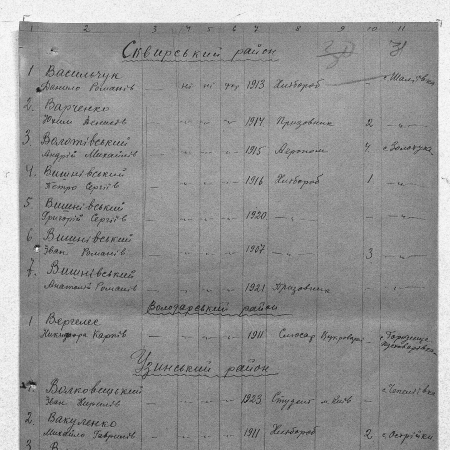 1 2 3 4 5 6 7 8 9 10 11
Сквирський район
1 Васильчук
Данило Романів ні ні 1913 Хлібороб
2. Варченко
Юхим Денисів - - - 1914 Призовник 2 - „ -
3. Волотківський
Андрій Михайлів - - - 1915 Агроном 4
4. Вишнівський
Петро Сергіїв - - - 1916 Хлібороб 1 - „ -
5 Вишнівський
Григорій Сергіїв - - - 1920 - „ - - „ -
6 Вишнівський
Іван Романів - - - 1907 - „ - 3 - „ -
7. Вишнівський
Анатолій Романів - - - 1921 Призовник - „ -
Володарський район
1 Вергелес
Никифор Карпів - - - 1911 Слюсар с. Городище
Узинський район
Волковецький
Іван Кирилів - - - 1923 Студент м. Київ -
2. Вакуленко
Михайло Гаврилів - - - 1911 Хлібороб 2 с. Острійки
3